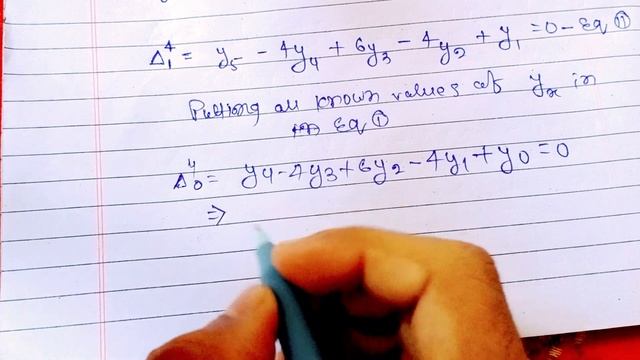 Δ₁⁴ = y₅ - 4y₄ + 6y₃ - 4y₂ + y₁ = 0 - Eq ⑪
Putting all known values of yₓ in
Eq ①
Δ₀⁴ = y4 - 4y3 + 6y2 - 4y1 + y0 = 0
⇒